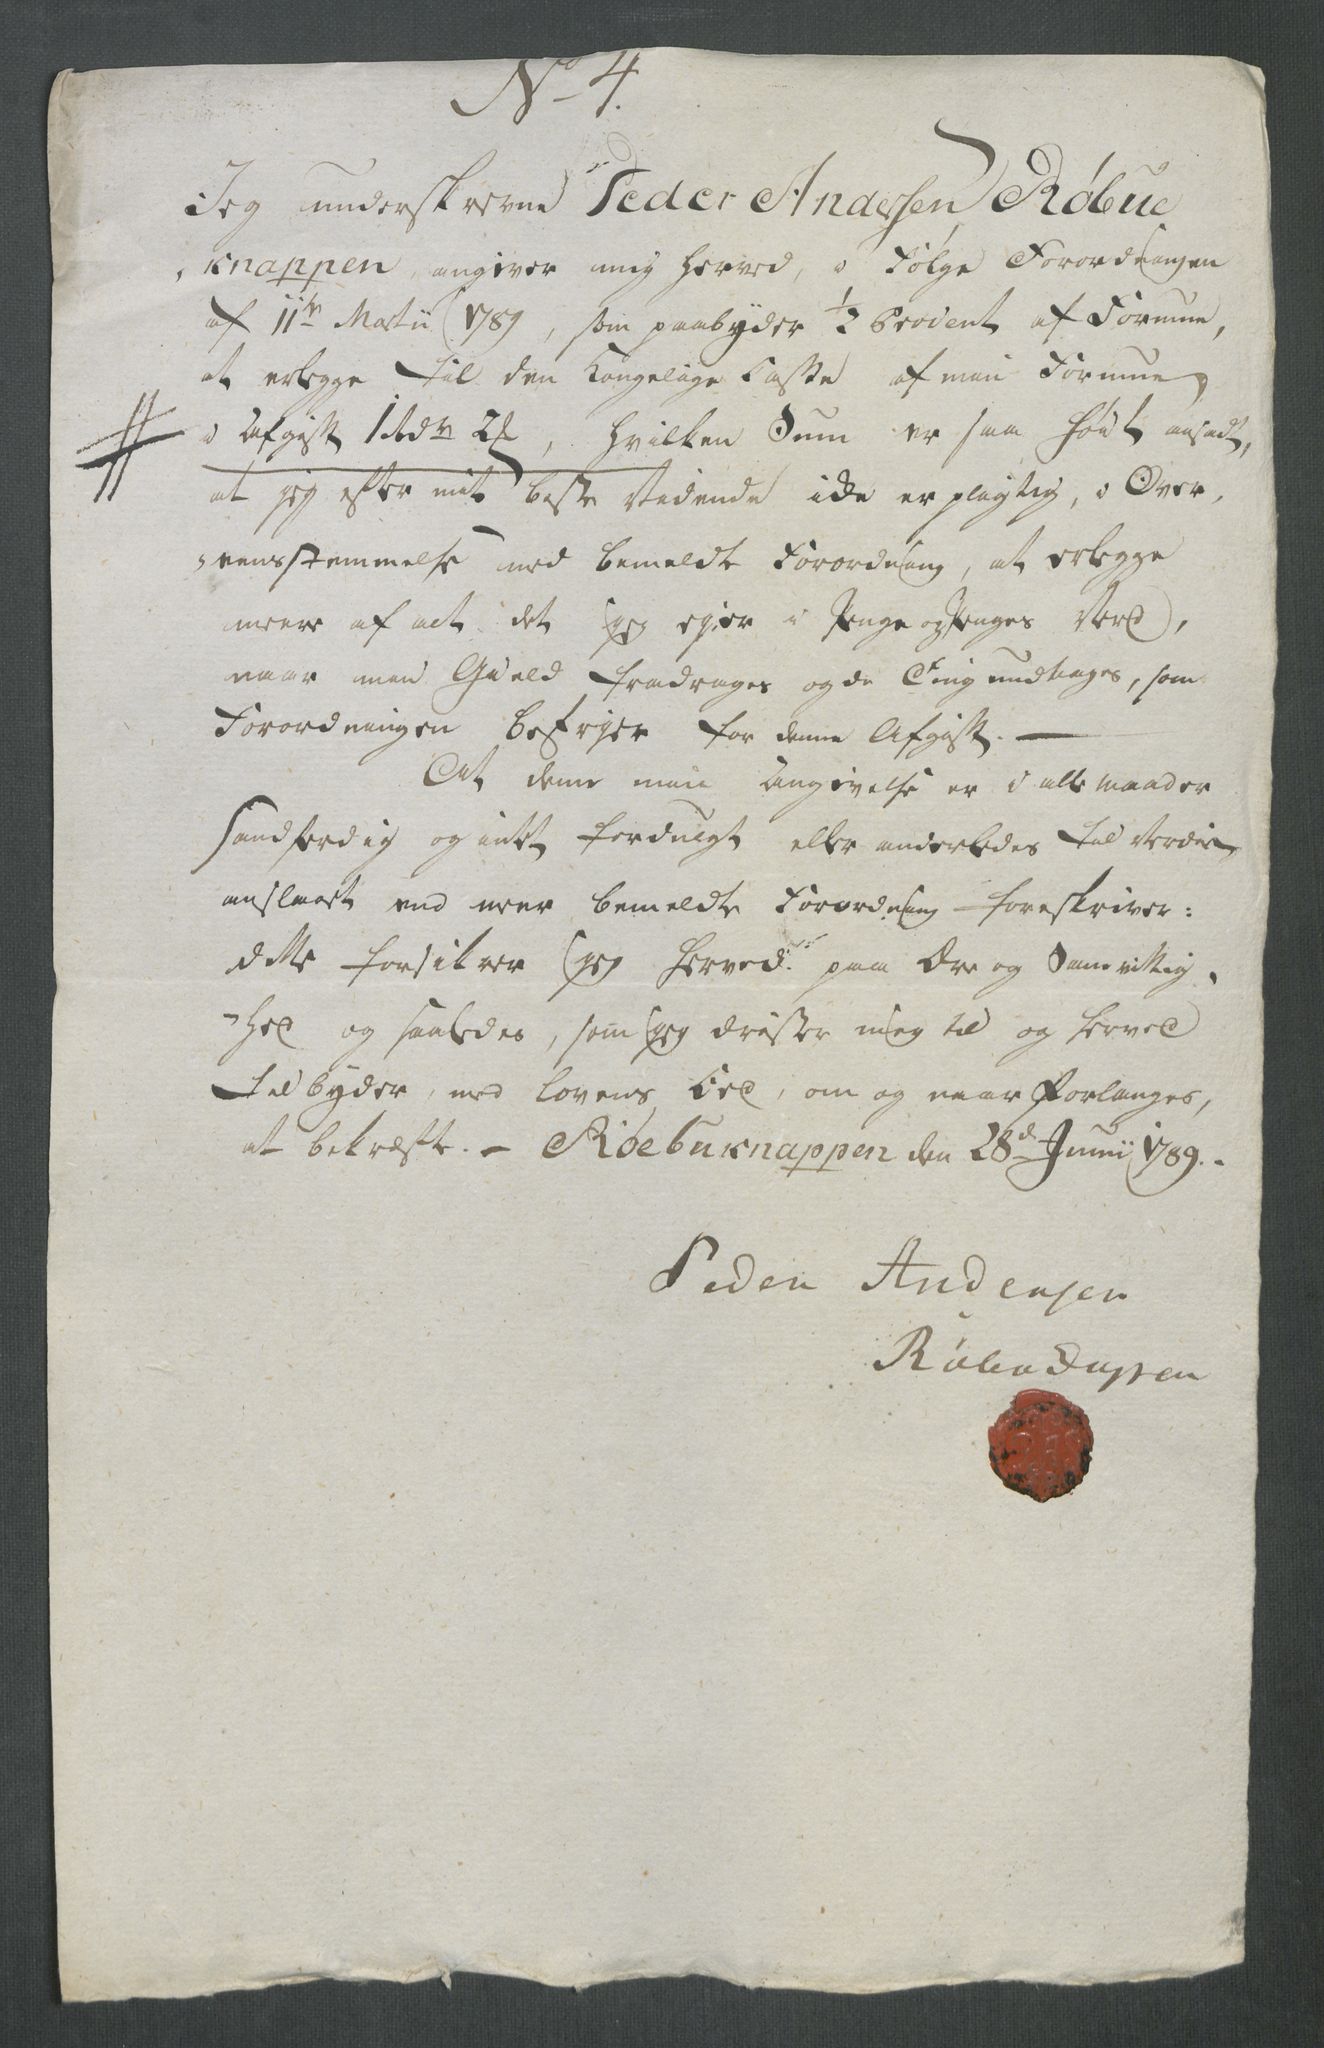 No 4.
Jeg underskrevne Peder Andersen Røbue
knappen angiver mig herved, i Følge Forordningen
af 11te Martii 1789, som paabyder 1/2 Procent af Formue,
at erlegge til den Kongelige Casse af min Formue
i Afgift 1 Rdr 2 s, hvilken Sum er saa høit ansadt,
at jeg efter mit beste Vidende ikke er pligtig, i Over,
eensstemmelse med bemeldte Forordning, at erlegge
meere af alt det jeg ejer i Penge og Penges Verd,
naar min Gield fradrages og de Ting undtages, som
Forordningen befrier for denne Afgift. —
At denne min Angivelse er i alle maader
sandferdig og intet fordulgt eller anderledes til Verdie
anslaaet end meer bemeldte Forordning foreskriver:
dette forsikrer jeg herved paa Ære og Samvittig,
hed og saaledes, som jeg drister mig til og herved
tilbyder, med lovens Eed, om og naar forlanges,
at bekræfte. - Røebuknappen den 28d Junii 1789.-
Peder Andersen
Røbuknappen